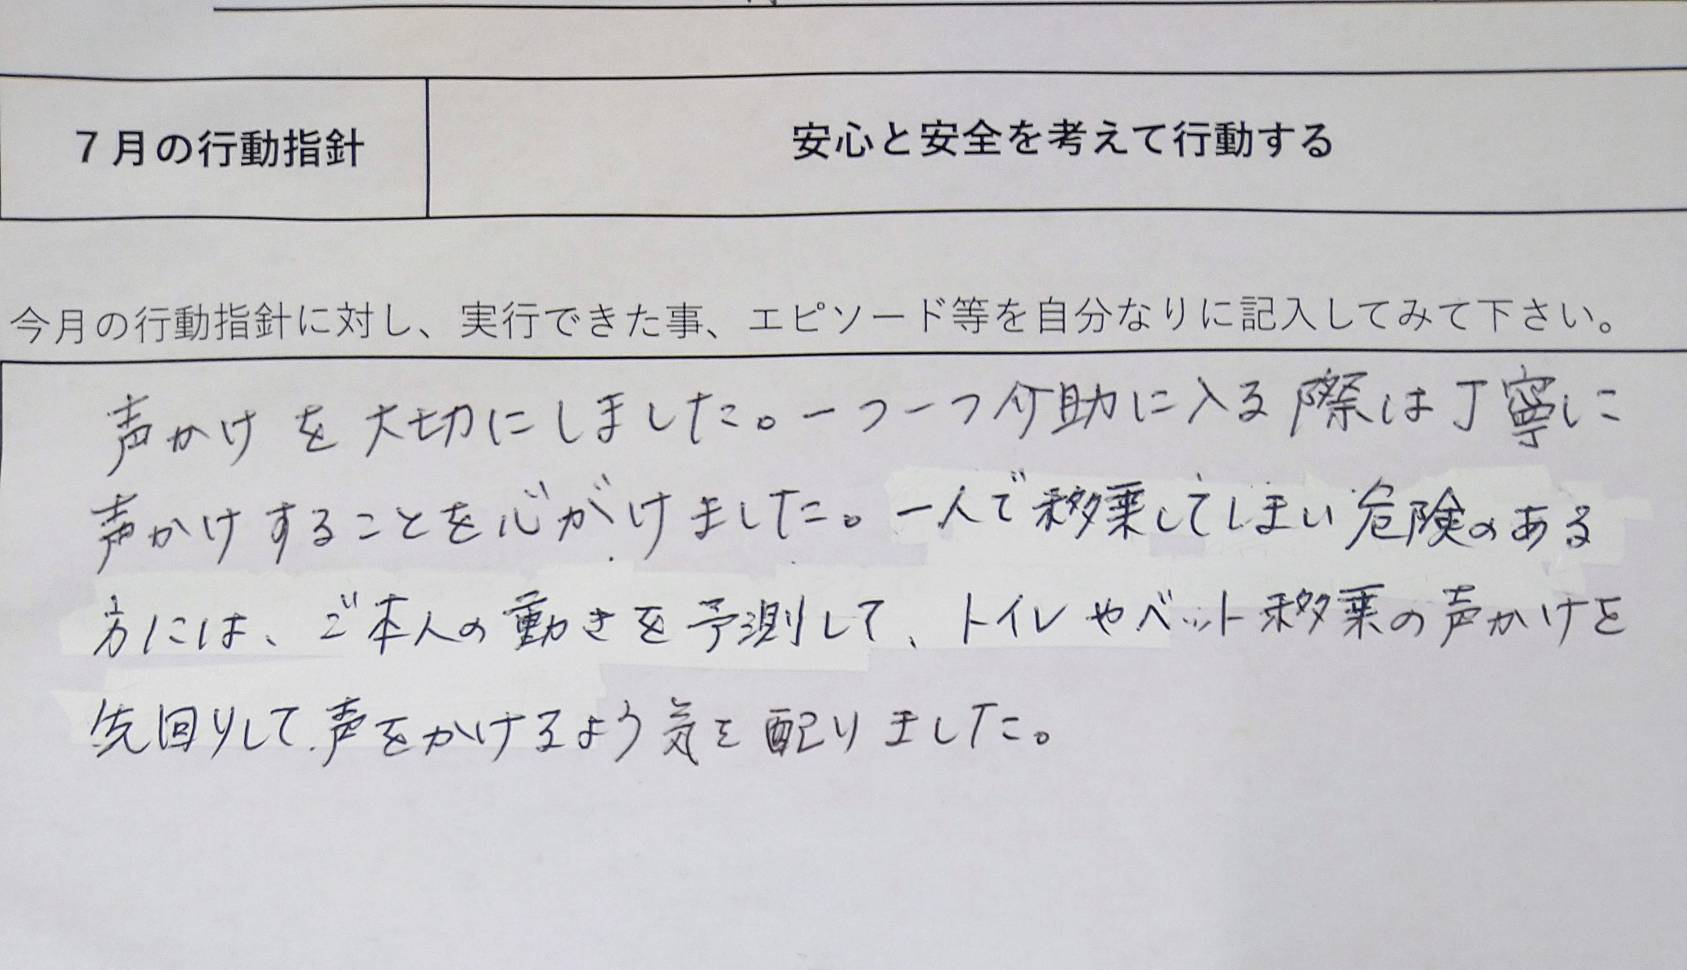 7月の行動指針
安心と安全を考えて行動する
今月の行動指針に対し、実行できた事、エピソード等を自分なりに記入してみて下さい。
声かけを大切にしました。一つ一つ介助に入る際は丁寧に
声かけすることを心がけました。一人で移乗してしまい危険のある
方には、ご本人の動きを予測して、トイレやベット移乗の声かけを
先回りして声をかけるよう気を配りました。